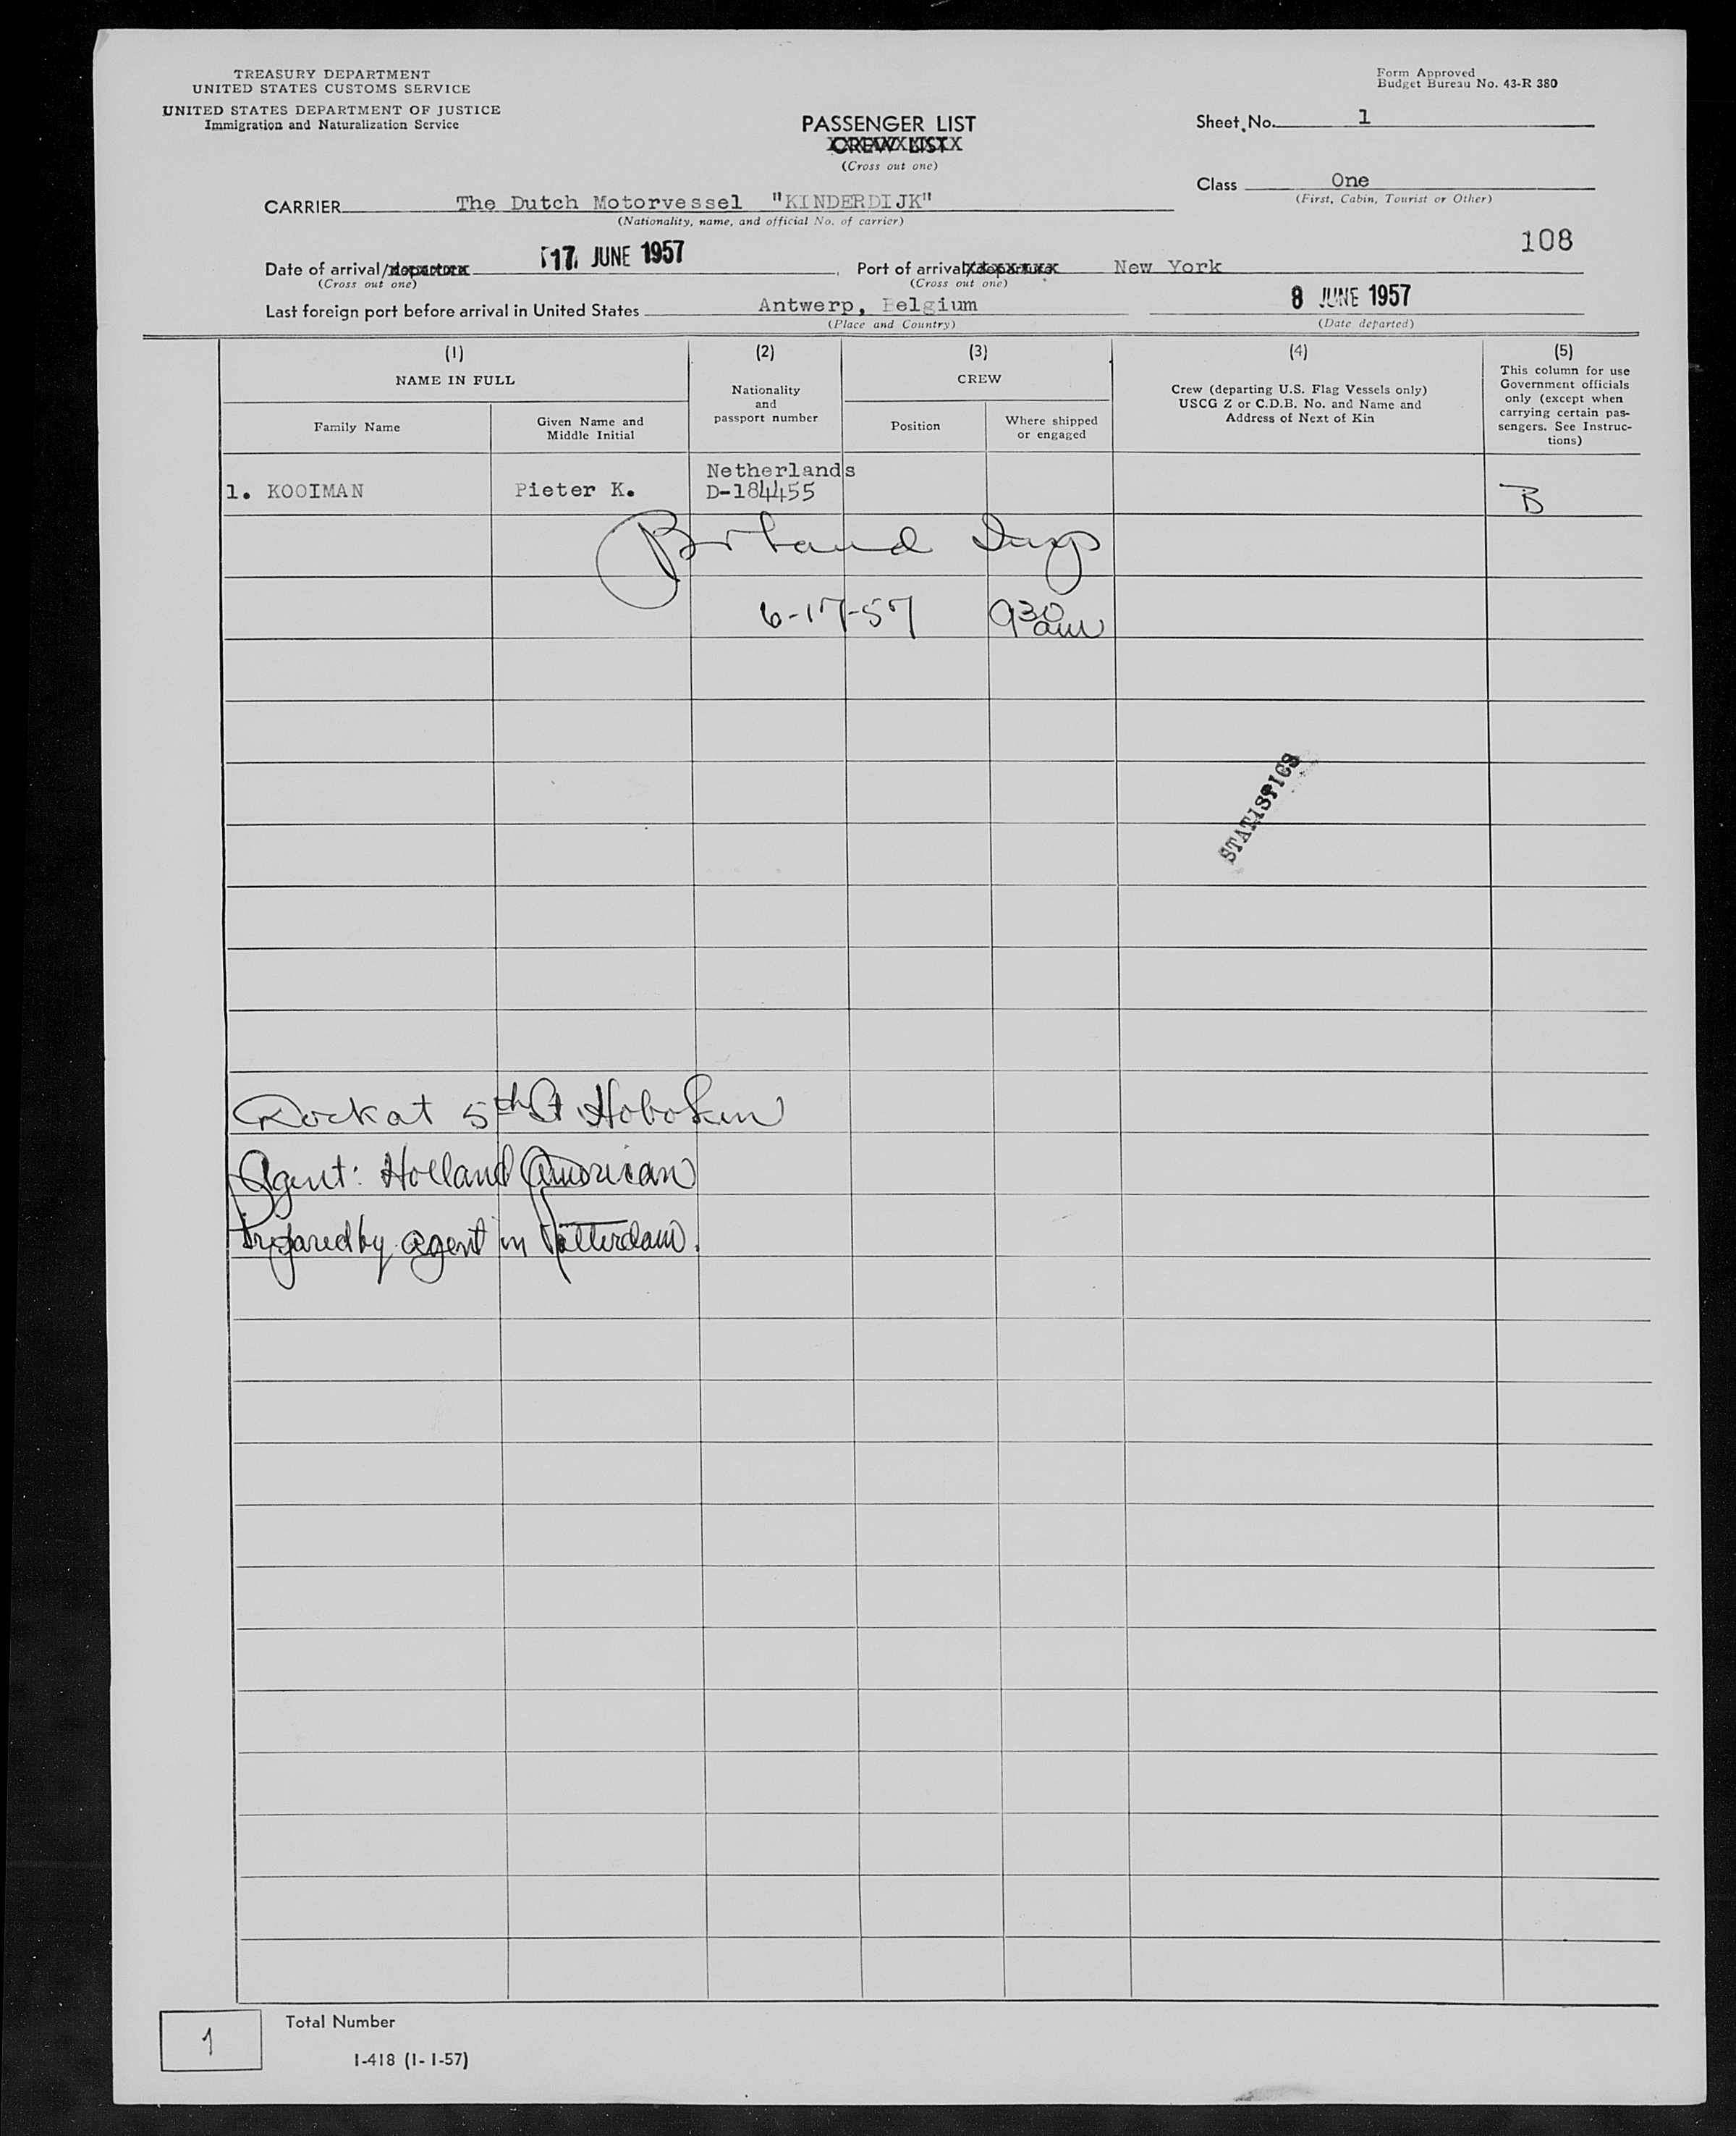 TREASURY DEPARTMENT
UNITED STATES CUSTOMS SERVICE
UNITED STATES DEPARTMENT OF JUSTICE
Immigration and Naturalization Service
Form Approved
Budget Bureau No. 43-R 380
PASSENGER LIST
CREW LIST
(Cross out one)
Sheet No. 1
Class One
(First, Cabin, Tourist or Other)
CARRIER The Dutch Motorvessel "KINDERDIJK"
(Nationality, name, and official No. of carrier)
108
Date of arrival/departure 17 JUNE 1957
(Cross out one)
Port of arrival/departure New York
(Cross out one)
Last foreign port before arrival in United States Antwerp, Belgium
(Place and Country)
8 JUNE 1957
(Date departed)
(1)
NAME IN FULL
Family Name
Given Name and
Middle Initial
(2)
Nationality
and
passport number
(3)
CREW
Position
Where shipped
or engaged
(4)
Crew (departing U.S. Flag Vessels only)
USCG Z or C.D.B. No. and Name and
Address of Next of Kin
(5)
This column for use
Government officials
only (except when
carrying certain pas-
sengers. See Instruc-
tions)
Netherlands
1. KOOIMAN Pieter K. D-184455 B
6-17-57 930 am
STATISTICS
Dock at 5th St. Hoboken
Agent: Holland American
Prepared by agent in Rotterdam.
1
Total Number
I-418 (1-1-57)